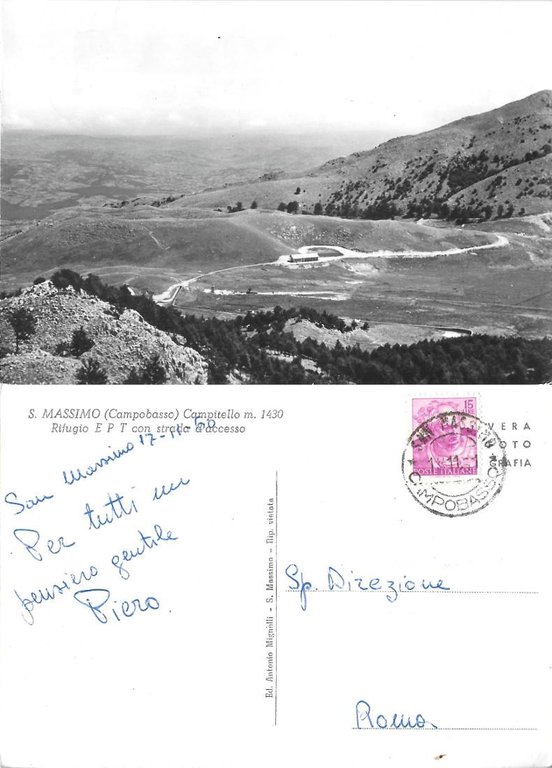 S. MASSIMO (Campobasso) Campitello m. 1430
Rifugio E P T con strada d'accesso
San Massimo 17-11-60
Per tutti un
pensiero gentile
Piero.
Ed. Antonio Mignolli - S. Massimo - Rip. vietata
15
POSTE ITALIANE
SAN MASSIMO
CAMPOBASSO
VERA
FOTO
GRAFIA
Sp. Direzione
Roma